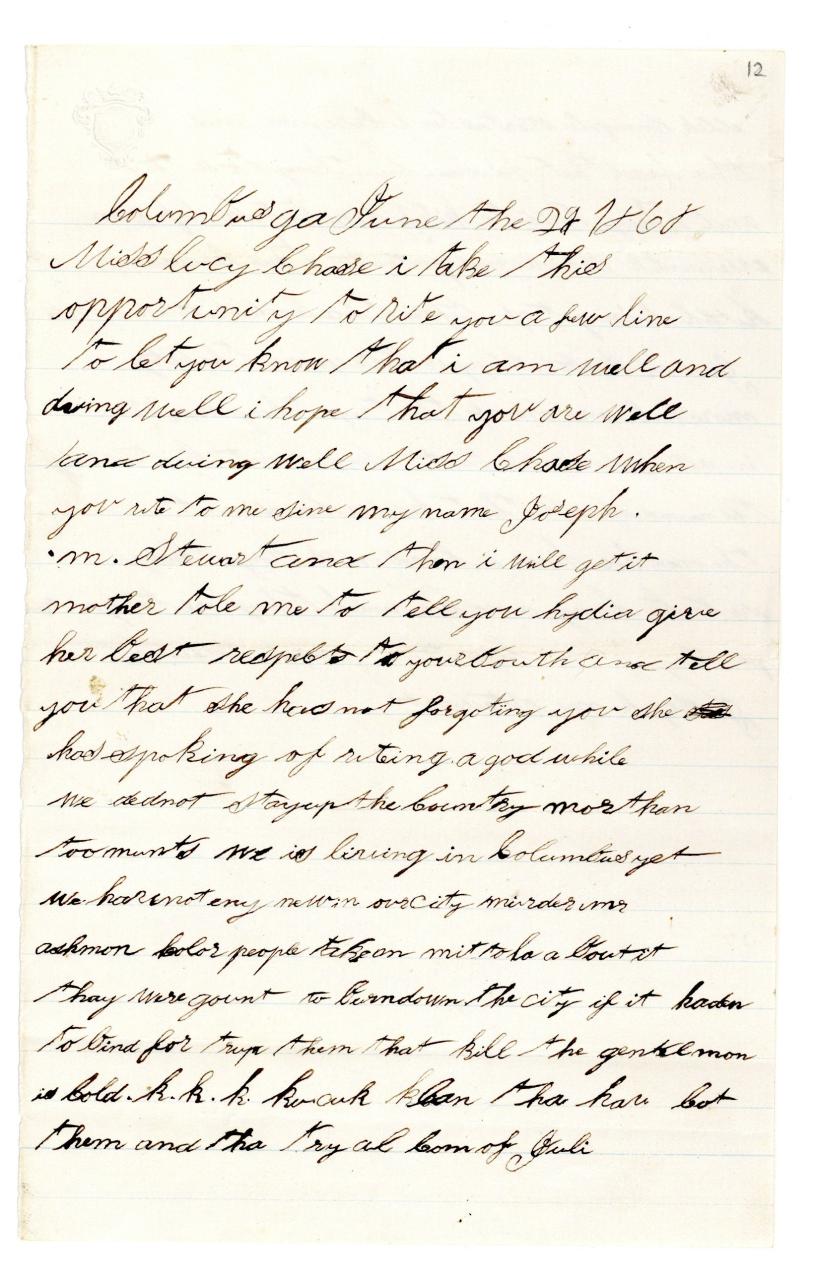 12
Columbus ga June the 29 1868
Miss lucy Chase i take this
opportunity to rite you a few line
to let you know that i am well and
duing well i hope that you are well
and duing well Miss Chase when
you rite to me sine my name Joseph.
.m. Stewart and then i will get it
mother tole me to tell you lydia give
her best respects to your bouth and tell
you that she has not forgoting you she
has spoking of riteing a god while
we dednot stay up the Country mor than
too munts we is living in Columbus yet
we have not eny new in our city murder
ashmon color people
thay were gount to burn down the city if it haden
to bind for trup them that kill the gentelmon
is cold. k. k. k. klan tha hav cot
them and tha try al com of Juli